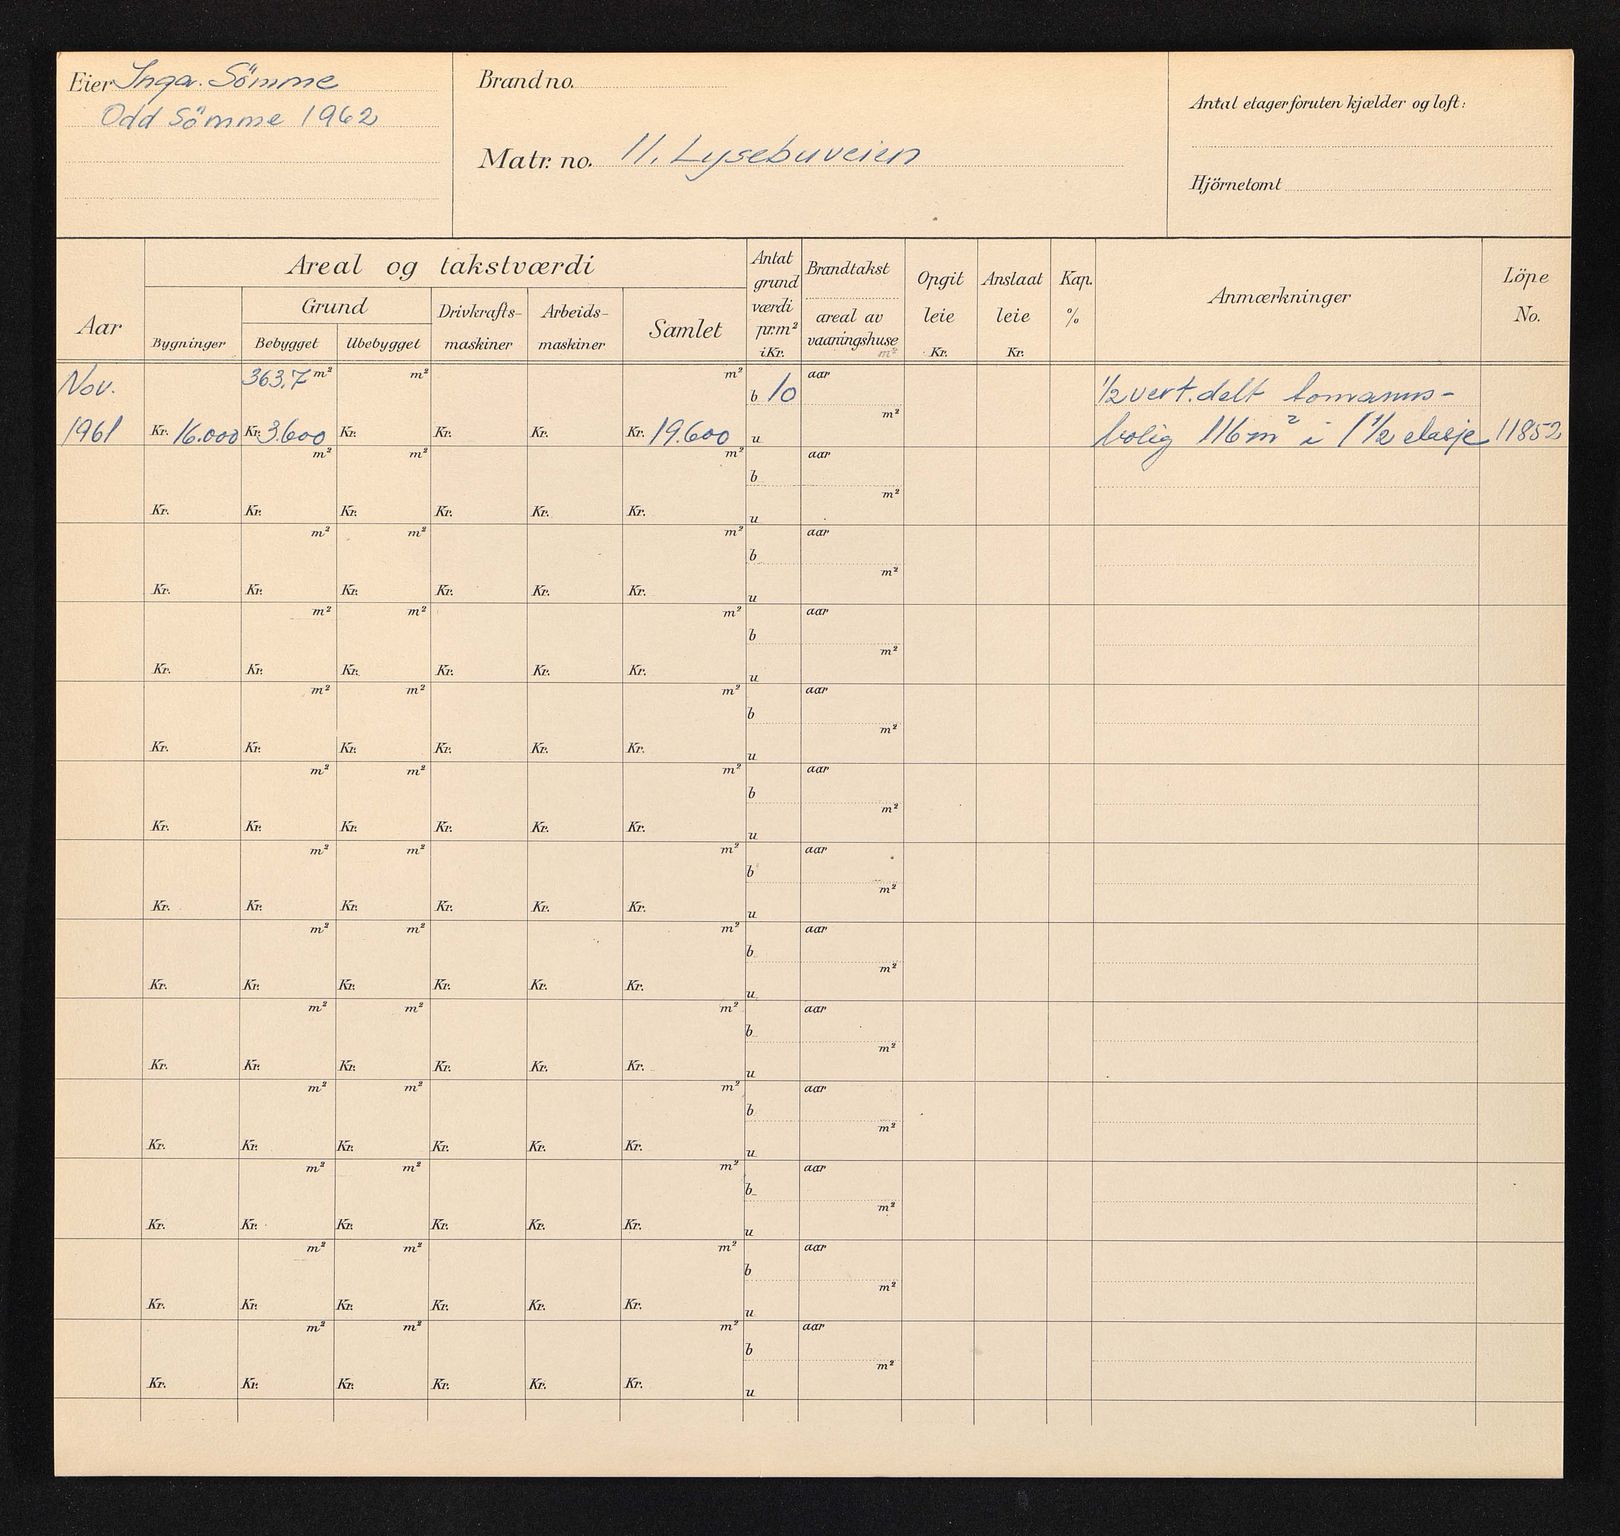 Eier Ingar. Sömme
Odd Sömme 1962
Brand no.
Matr. no. 11. Lysebuveien
Antal etager foruten kjælder og loft:
Hjörnetomt
Aar
Areal og takstværdi
Bygninger
Grund
Bebygget
Ubebygget
Drivkrafts-
maskiner
Arbeids-
maskiner
Samlet
Antat
grund
værdi
pr. m²
i Kr.
Brandtakst
areal av
vaaningshuse
m²
Opgit
leie
Kr.
Anslaat
leie
Kr.
Kap.
%
Anmærkninger
Löpe
No.
Nov. 363.7 m² m² m² b 10 aar 1/2 vert. delt tomanns-
m²
1961 Kr. 16.000 Kr. 3.600 Kr. Kr. Kr. Kr. 19.600 u bolig 116 m² i 1 1/2 etasje 11852
m² m² m² aar
b
m²
Kr. Kr. Kr. Kr. Kr. Kr. u
m² m² m² aar
b
m²
Kr. Kr. Kr. Kr. Kr. Kr. u
m² m² m² aar
b
m²
Kr. Kr. Kr. Kr. Kr. Kr. u
m² m² m² aar
b
m²
Kr. Kr. Kr. Kr. Kr. Kr. u
m² m² m² aar
b
m²
Kr. Kr. Kr. Kr. Kr. Kr. u
m² m² m² aar
b
m²
Kr. Kr. Kr. Kr. Kr. Kr. u
m² m² m² aar
b
m²
Kr. Kr. Kr. Kr. Kr. Kr. u
m² m² m² aar
b
m²
Kr. Kr. Kr. Kr. Kr. Kr. u
m² m² m² aar
b
m²
Kr. Kr. Kr. Kr. Kr. Kr. u
m² m² m² aar
b
m²
Kr. Kr. Kr. Kr. Kr. Kr. u
m² m² m² aar
b
m²
Kr. Kr. Kr. Kr. Kr. Kr. u
m² m² m² aar
b
m²
Kr. Kr. Kr. Kr. Kr. Kr. u